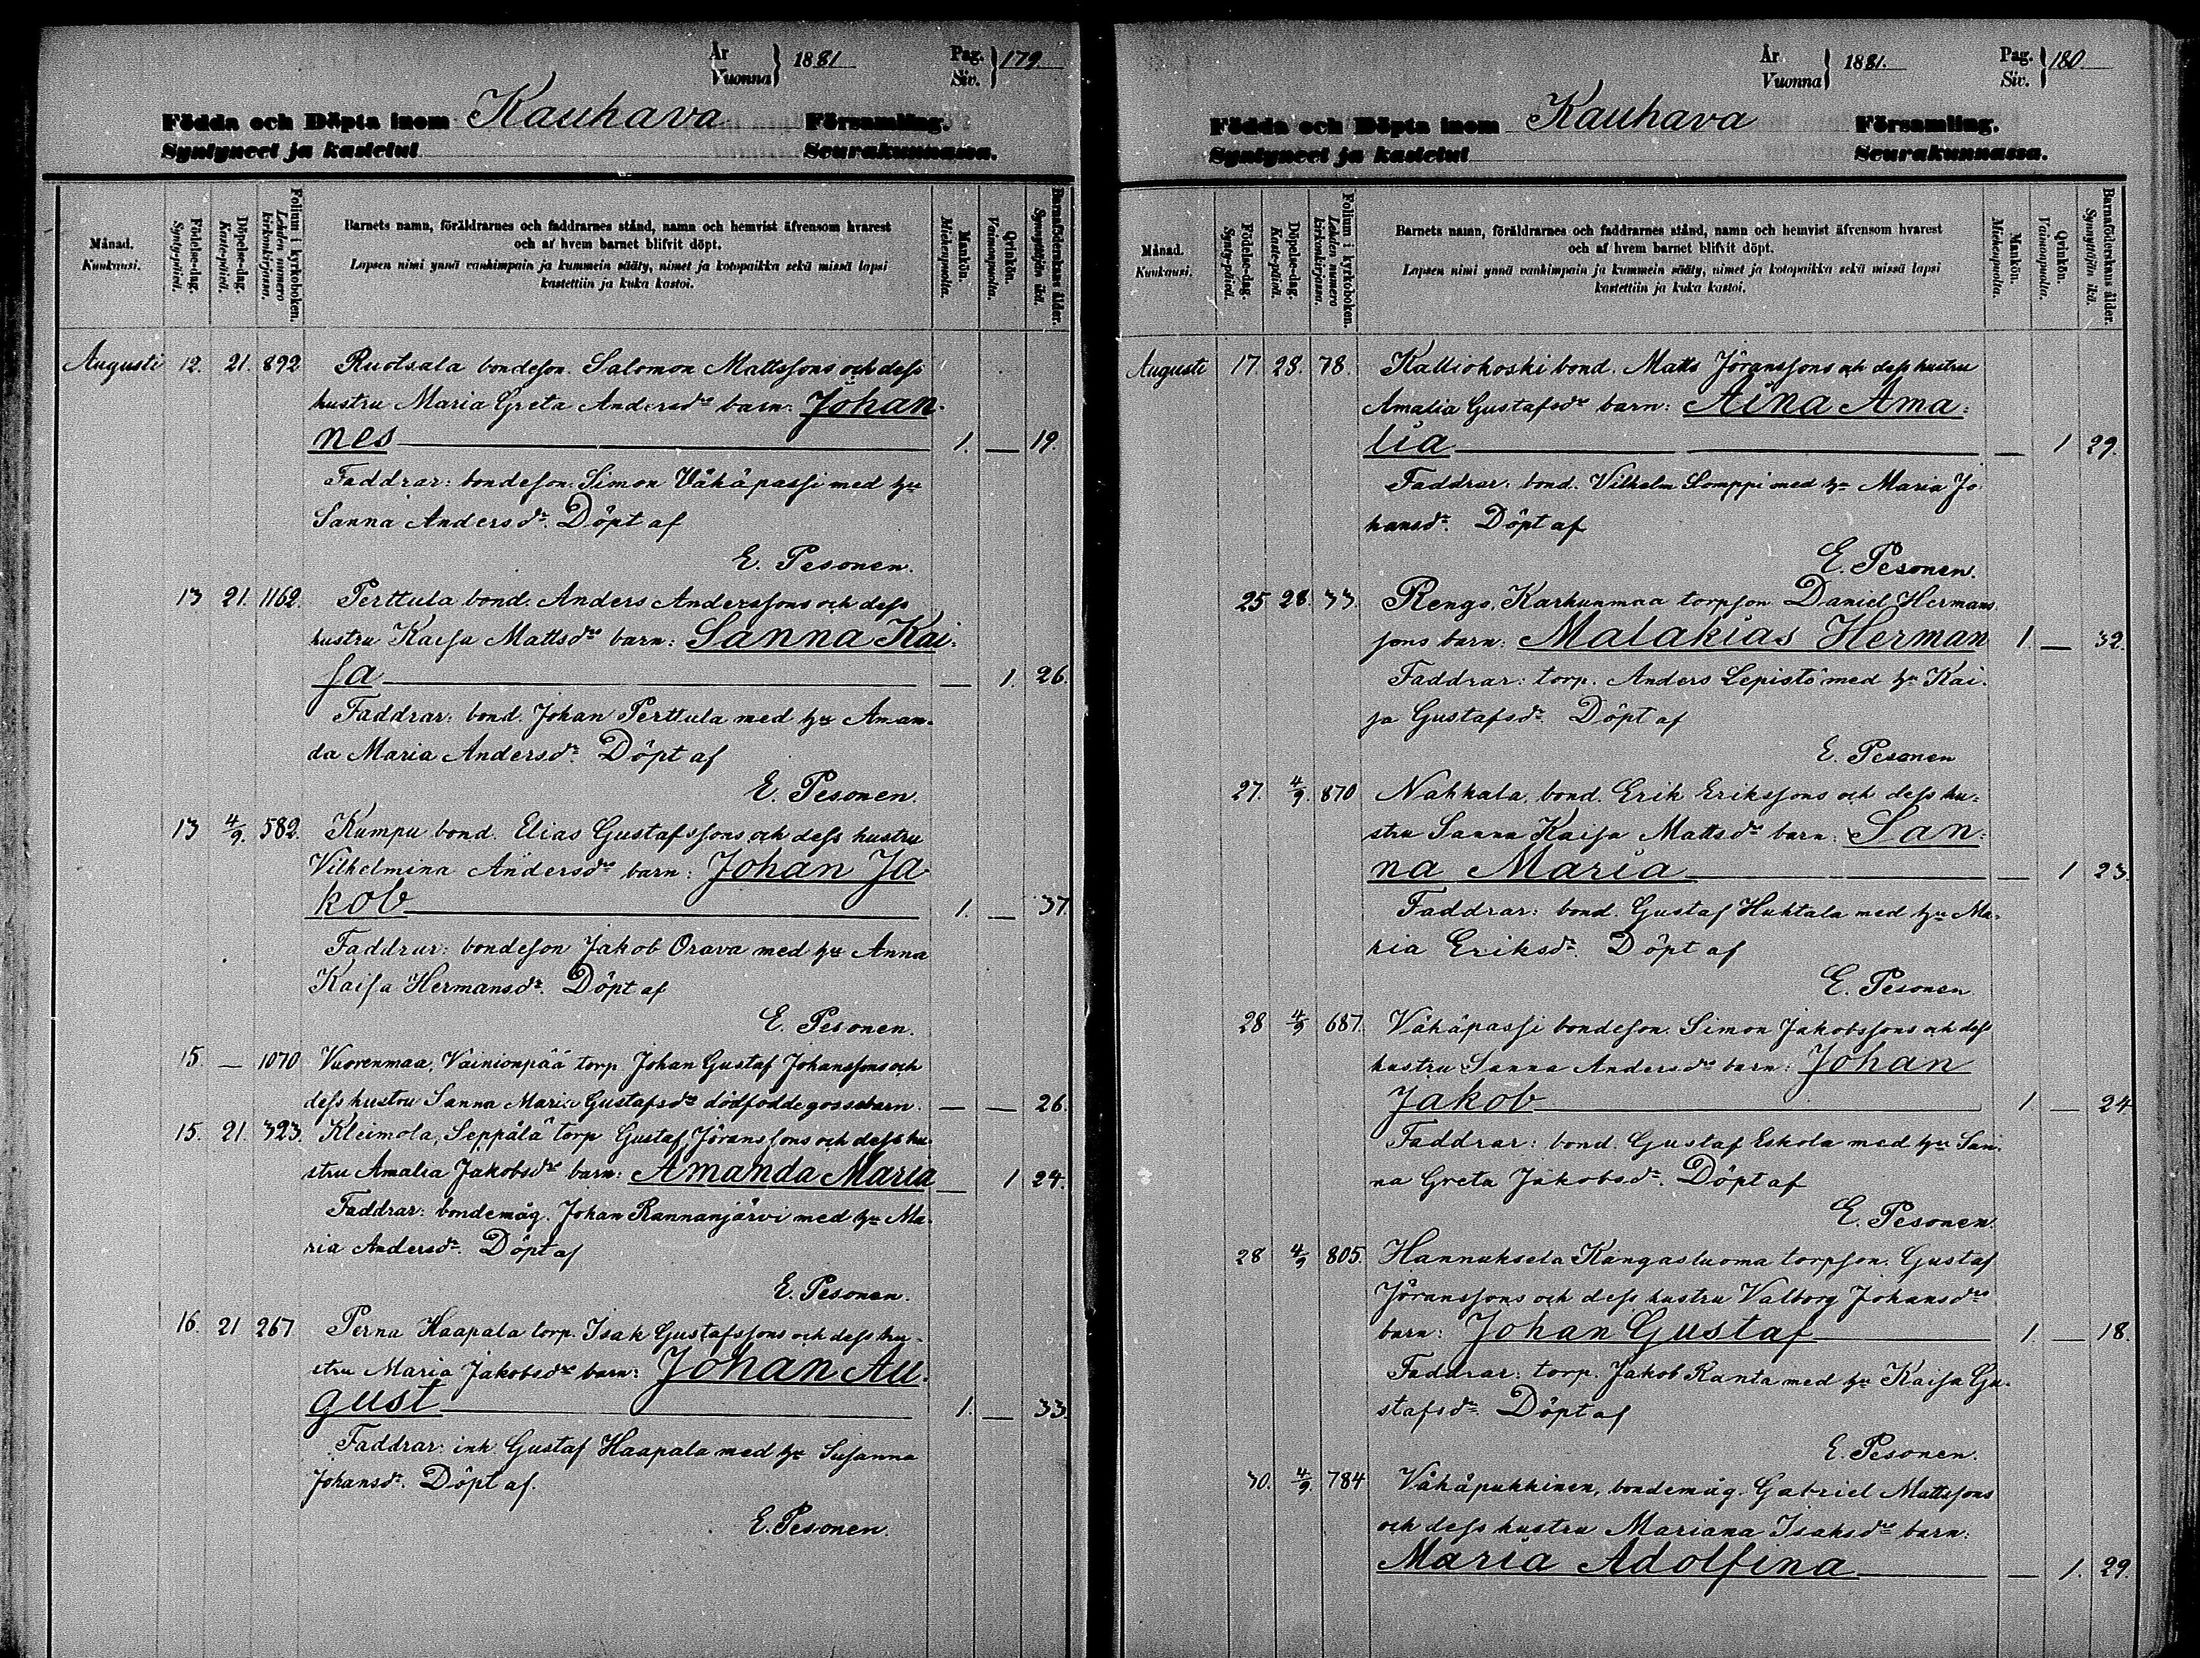 År
Vuonna } 1881
Pag.
Siv. } 179
Födda och Döpta inom Kauhava Församling.
Syntyneet ja kastetut Seurakunnassa.
Månad.
Kuukausi.
Födelse-dag.
Synty-päivä.
Döpelse-dag.
Kaste-päivä.
Folium i kyrkoboken.
Lehden numero kirkonkirjassa.
Barnets namn, föräldrarnes och faddrarnes stånd, namn och hemvist äfvensom hvarest
och af hvem barnet blifvit döpt.
Lapsen nimi ynnä vanhimpain ja kummein sääty, nimet ja kotopaikka sekä missä lapsi
kastettiin ja kuka kastoi.
Mankön.
Miehenpuolta.
Qvinkön.
Vaimonpuolta.
Barnaföderskans ålder.
Synnyttäjän ikä.
Augusti 12. 21. 892 Ruotsala bondeson. Salomon Mattssons och dess
hustru Maria Greta Andersdrs barn: Johan-
nes 1. — 19.
Faddrar: bondeson Simon Vähäpassi med hu
Sanna Andersdr. Döpt af
E. Pesonen.
13 21. 1162. Perttula bond. Anders Anderssons och dess
hustru Kaisa Mattsdrs barn: Sanna Kai-
sa — 1. 26.
Faddrar: bond. Johan Perttula med hu Aman-
da Maria Andersdr. Döpt af
E. Pesonen.
13 4/9. 582. Kumpu bond. Elias Gustafssons och dess hustru
Vilhelmina Andersdrs barn: Johan Ja-
kob 1. — 37.
Faddrar: bondeson Jakob Orava med hu Anna
Kaisa Hermansdr. Döpt af
E. Pesonen.
15. — 1070 Vuorenmaa, Vainionpää torp. Johan Gustaf Johanssons och
dess hustru Sanna Maria Gustafsdrs dödfödde gossebarn. — — 26.
15. 21. 323. Kleimola, Seppälä torp Gustaf Jöranssons och dess hu-
stru Amalia Jakobsdrs barn: Amanda Maria — 1 24.
Faddrar: bondemåg. Johan Rannanjärvi med hu Ma-
ria Andersdr. Döpt af
E. Pesonen.
16. 21 267 Perna Haapala torp. Isak Gustafssons och dess hu-
stru Maria Jakobsdrs barn: Johan Au-
gust 1. — 33.
Faddrar: inh Gustaf Haapala med hu Susanna
Johansdr. Döpt af.
E. Pesonen.
År
Vuonna } 1881.
Pag.
Siv. } 180.
Födda och Döpta inom Kauhava Församling.
Syntyneet ja kastetut Seurakunnassa.
Månad.
Kuukausi.
Födelse-dag.
Synty-päivä.
Döpelse-dag.
Kaste-päivä.
Folium i kyrkoboken.
Lehden numero kirkonkirjassa.
Barnets namn, föräldrarnes och faddrarnes stånd, namn och hemvist äfvensom hvarest
och af hvem barnet blifvit döpt.
Lapsen nimi ynnä vanhimpain ja kummein sääty, nimet ja kotopaikka sekä missä lapsi
kastettiin ja kuka kastoi.
Mankön.
Miehenpuolta.
Qvinkön.
Vaimonpuolta.
Barnaföderskans ålder.
Synnyttäjän ikä.
Augusti 17. 28. 78. Kalliokoski bond. Matts Jöranssons och dess hustru
Amalia Gustafsdrs barn: Aina Ama-
lia — 1 29.
Faddrar: bond. Vilhelm Somppi med hu Maria Jo-
hansdr. Döpt af
E. Pesonen.
25 28. 33. Rengo, Karhunmaa torpson Daniel Hermans
sons barn: Malakias Herman 1. — 32.
Faddrar: torp. Anders Lepistö med hu Kai-
sa Gustafsdr. Döpt af
E. Pesonen
27. 4/9. 870 Nahkala, bond. Erik Erikssons och dess hu-
stru Sanna Kaisa Mattsdrs barn: San-
na Maria — 1 23.
Faddrar: bond. Gustaf Huhtala med hu Ma-
ria Eriksdr. Döpt af
E. Pesonen
28 4/9 687. Vähäpassi bondeson. Simon Jakobssons och dess
hustru Sanna Andersdrs barn: Johan
Jakob 1. — 24
Faddrar: bond. Gustaf Eskola med hu San-
na Greta Jakobsdr. Döpt af
E. Pesonen.
28 4/9 805. Hannuksela Kangasluoma torpson. Gustaf
Jöranssons och dess hustru Valborg Johansdrs
barn: Johan Gustaf 1. — 18.
Faddrar: torp. Jakob Ranta med hu Kaisa Gu-
stafsdr. Döpt af
E. Pesonen.
30. 4/9. 784 Vähäpukkinen, bondemåg. Gabriel Mattssons
och dess hustru Mariana Isaksdrs barn:
Maria Adolfina — 1. 29.